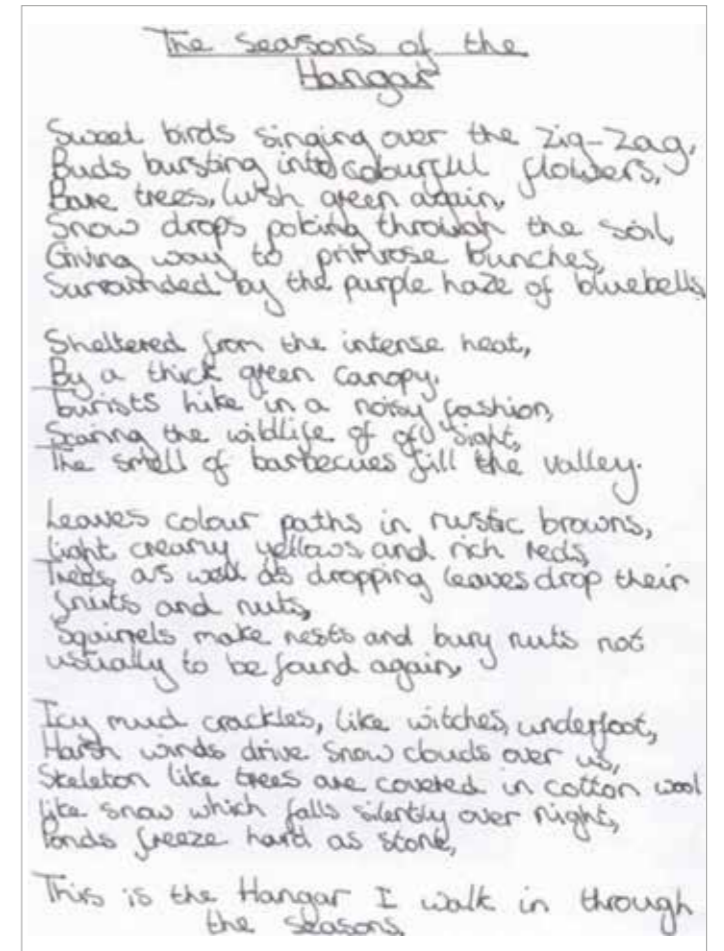 The Seasons of the
Hangar
Sweet birds singing over the Zig-Zag,
Buds bursting into colourful flowers,
Bare trees, lush green again,
Snow drops poking through the soil,
Giving way to primrose bunches,
Surrounded by the purple haze of bluebells
Sheltered from the intense heat,
By a thick green canopy.
Tourists hike in a noisy fashion,
Scaring the wildlife of sight,
The smell of barbecues fill the valley.
Leaves colour paths in rustic browns,
Light creamy yellows and rich reds,
Trees, as well as dropping leaves drop their
fruits and nuts,
Squirrels make nests and bury nuts not
usually to be found again,
Icy mud crackles, like witches, underfoot,
Harsh winds drive snow clouds over us,
Skeleton like trees are covered in cotton wool
like snow which falls silently over night,
Ponds freeze hard as stone,
This is the Hangar I walk in through
the seasons